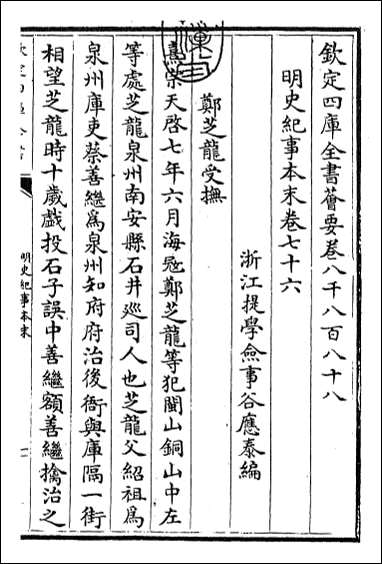 欽定四庫全書薈要卷八千八百八十八
明史紀事本末卷七十六
浙江提學僉事谷應泰編
鄭芝龍受撫
熹宗天啓七年六月海冦鄭芝龍等犯閩山銅山中左
等處芝龍泉州南安縣石井廵司人也芝龍父紹祖為
泉州庫吏蔡善繼為泉州知府府治後衙與庫隔一街
相望芝龍時十歲戲投石子誤中善繼額善繼擒治之
明史紀事本末